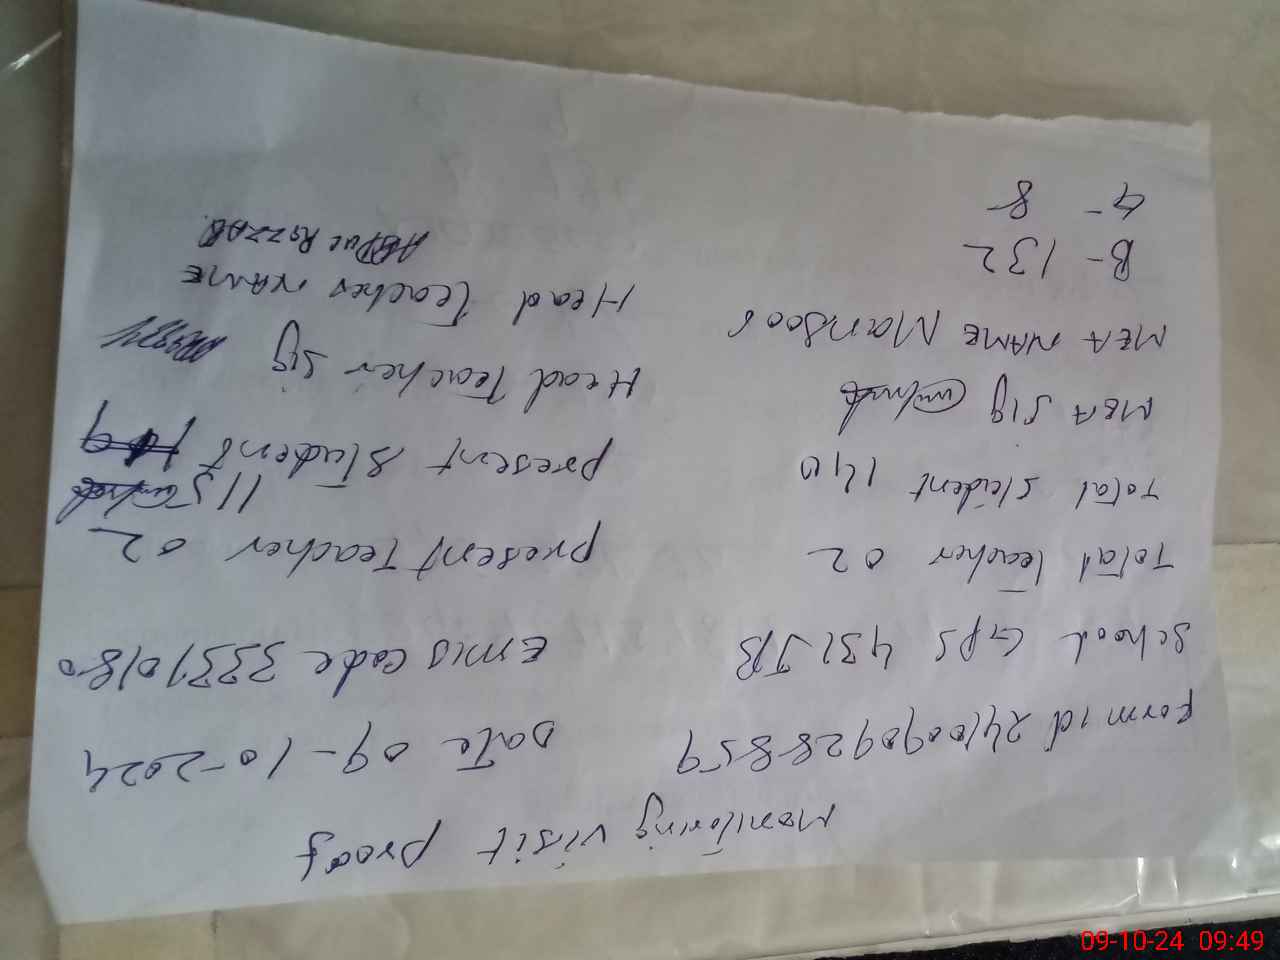 Monitoring visit proof
Form id 2410090928859 Date 09-10-2024
School GPS 431 JB Emis code 33310180
Total Teacher 02 present Teacher 02
Total student 140 present student 115
MEA Sig Head Teacher Sig
MEA NAME Mansoor Head Teacher NAME
B- 132 ABDul RAZZAQ
G- 8
09-10-24 09:49